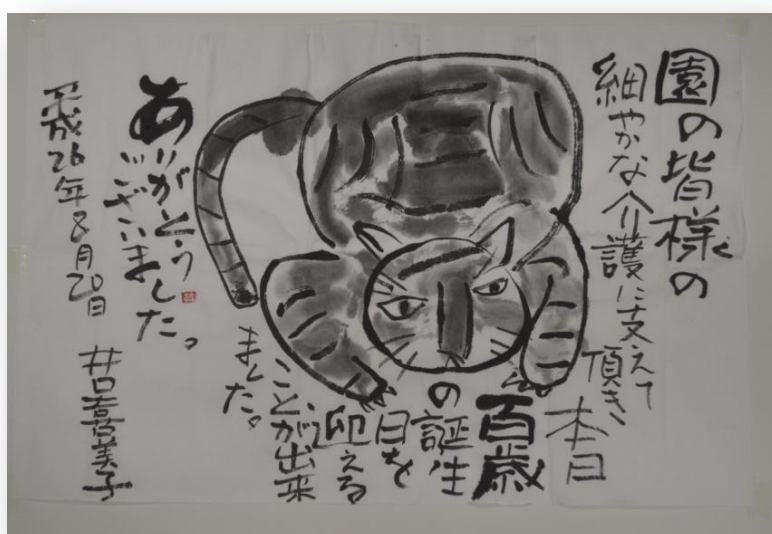 園の皆様の
細やかな介護に支えて
頂き、
本日
百歳
の誕生
日を
迎える
ことが出来
ました。
ありがとう
ございました。
平成26年8月20日
井口喜美子